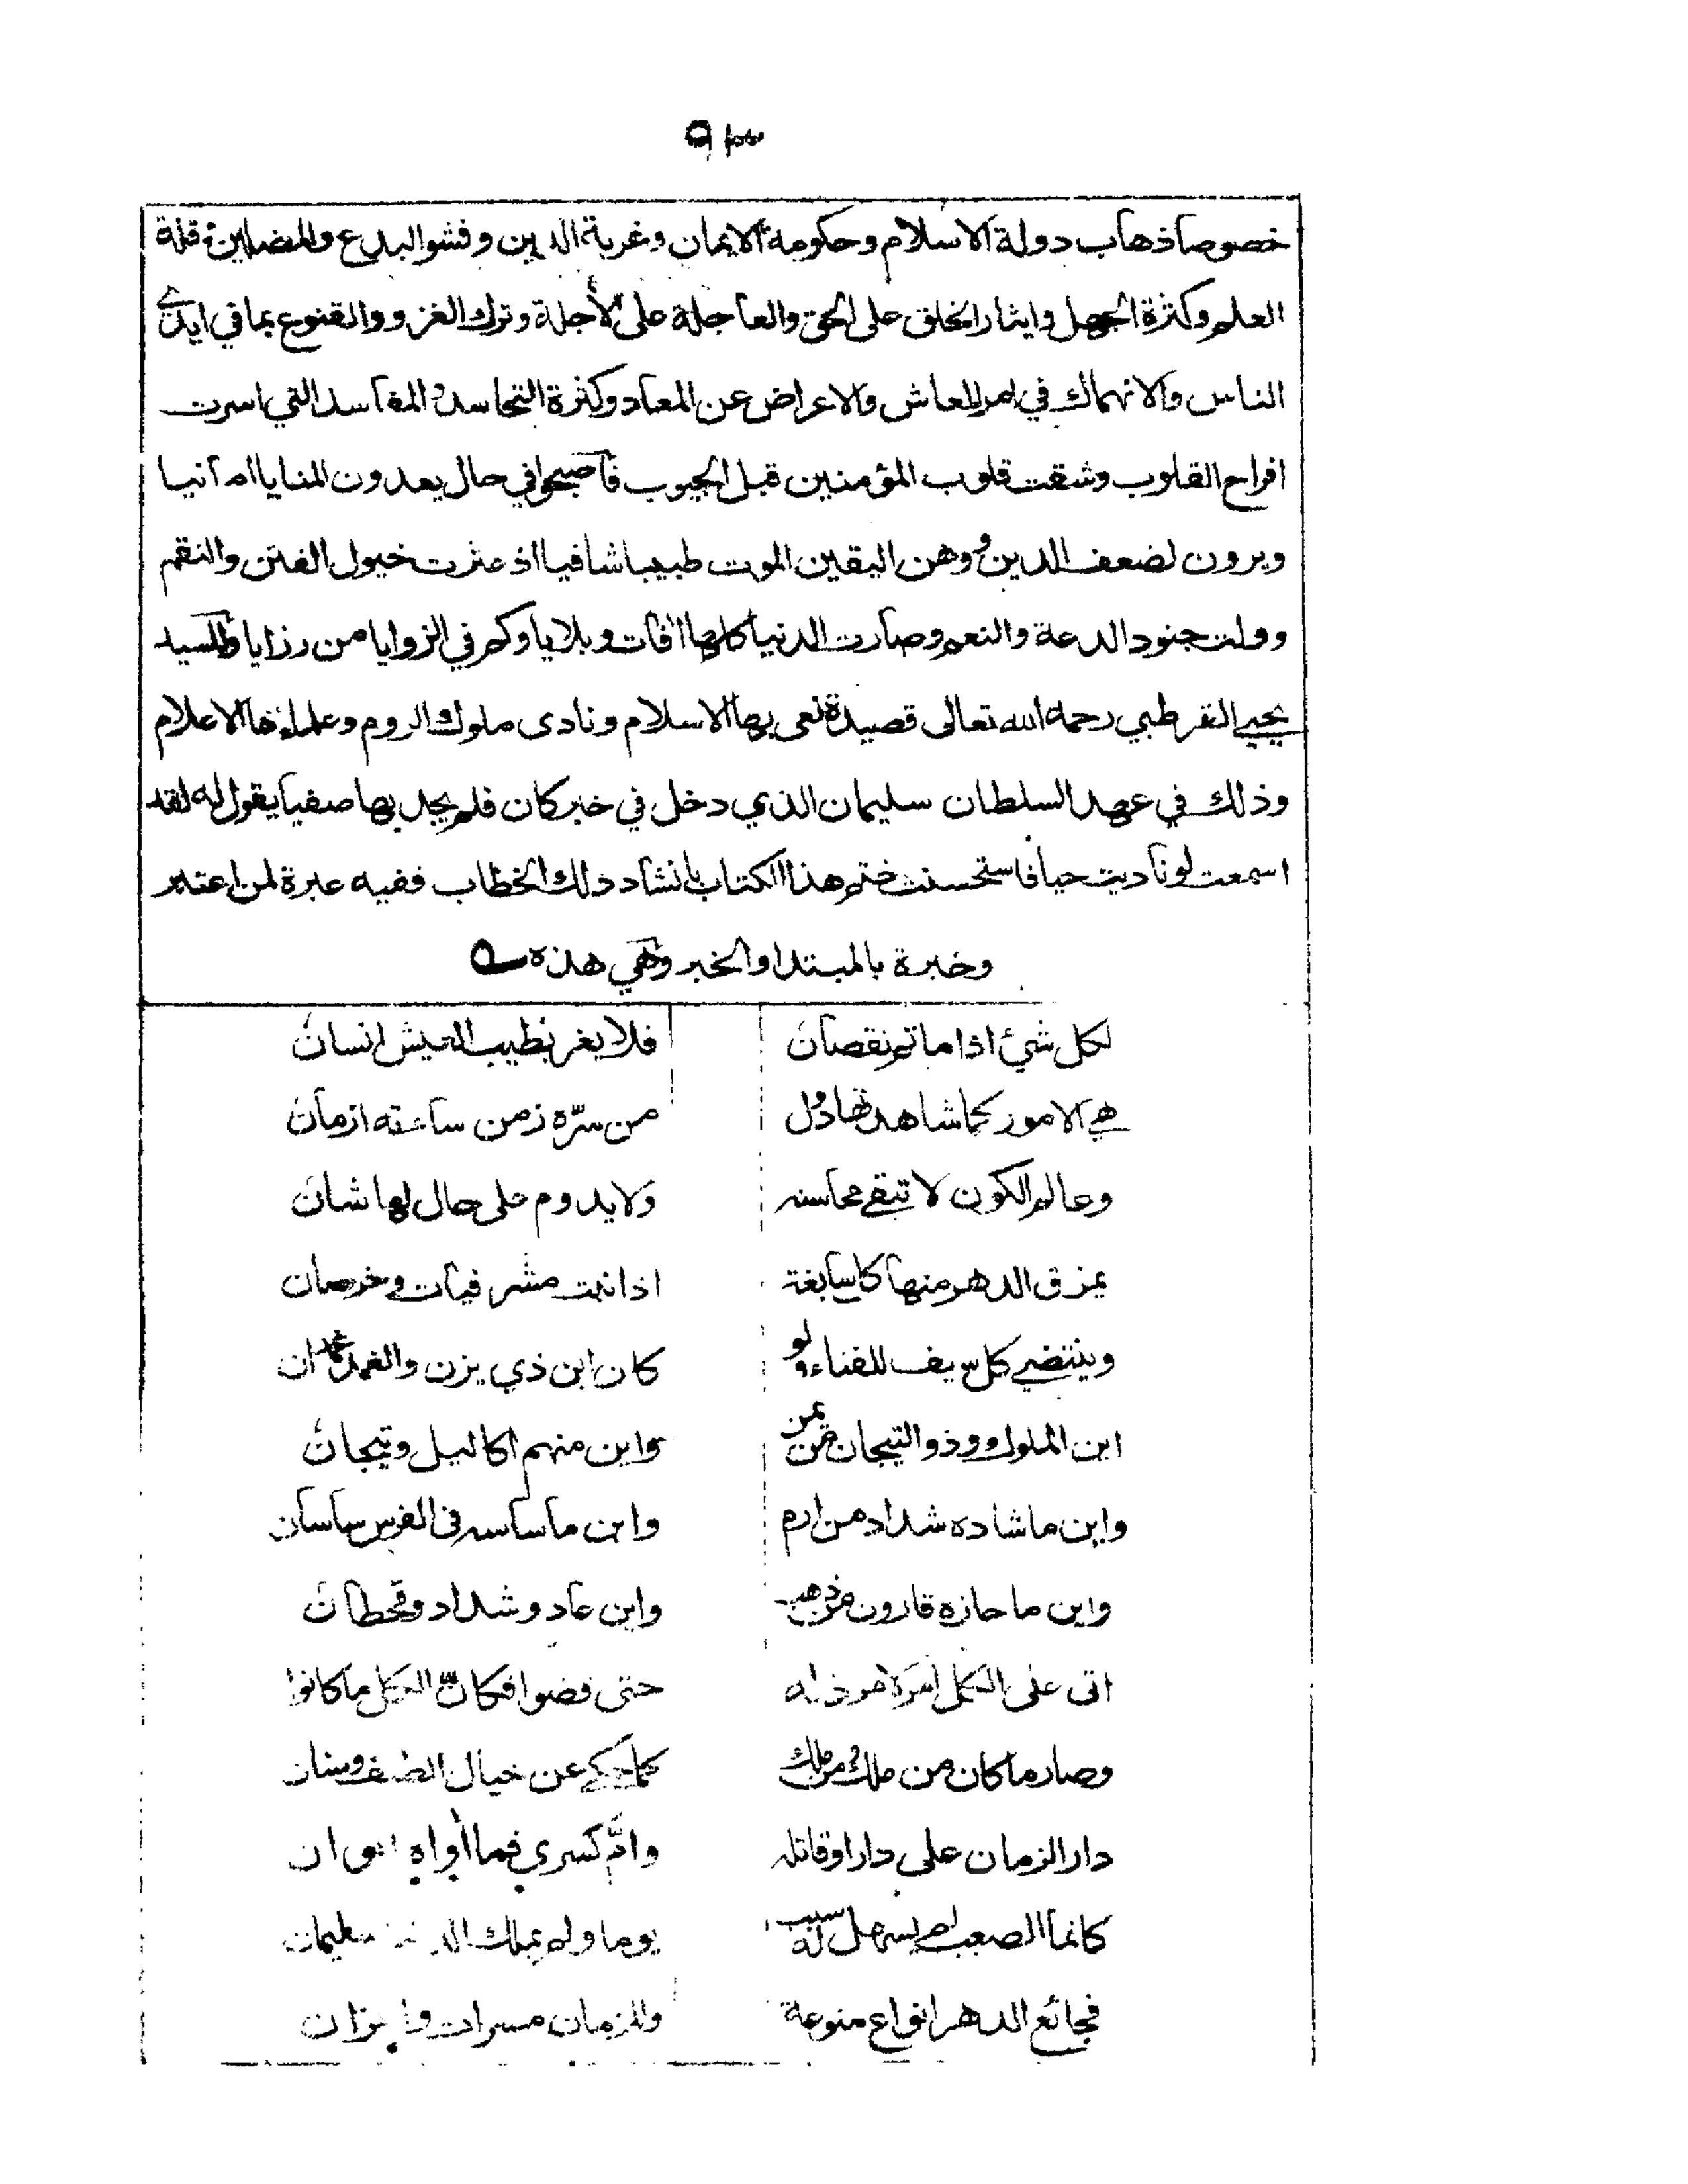 ٩٣
خصوصا ذهاب دولة الاسلام وحكومة الايمان وغربة الدين وفشو البدع والمضلين وقلة
العلم وكثرة الجهل وايثار الخلق على الحق والعاجلة على الأجلة وترك الغزو والقنوع بما في ايدي
الناس والانهماك في امر المعاش والاعراض عن المعاد وكثرة التحاسد والمفاسد التي اسرت
افراح القلوب وشقت قلوب المؤمنين قبل الجيوب فاصبحوا في حال يعدون المنايا امانيا
ويرون لضعف الدين ووهن اليقين الموت طبيبا شافيا اذ عثرت خيول الفتن والنقم
وولت جنود الدعة والنعم وصارت الدنيا كلها افات وبلايا وكم في الزوايا من رزايا وللسيد
يحيى القرطبي رحمه الله تعالى قصيدة نعى بها الاسلام ونادى ملوك الروم وعلماءها الاعلام
وذلك في عهد السلطان سليمان الذي دخل في خبر كان فلم يجد بها صفيا يقول له لقد
اسمعت لو ناديت حيا فاستحسنت ختم هذا الكتاب بانشاد ذلك الخطاب ففيه عبرة لمن اعتبر
وخبرة بالمبتدا والخبر وهي هذه
لكل شئ اذا ما تم نقصان فلا يغر بطيب العيش انسان
هي الامور كما شاهدتها دول من سره زمن ساءته ازمان
وعالم الكون لا تبقى محاسنه ولا يدوم على حال لها شان
يمزق الدهر منها كل سابغة اذا نبت مشرفيات وخرصان
وينتضي كل سيف للفناء ولو كان ابن ذي يزن والغمد غمدان
اين الملوك وذو التيجان من يمن واين منهم اكاليل وتيجان
واين ما شاده شداد من ارم واين ما ساسه في الفرس ساسان
واين ما حازه قارون من ذهب واين عاد وشداد وقحطان
اتى على الكل امر لا مرد له حتى قضوا فكان الكل ما كانوا
وصار ما كان من ملك ومن ملك كما حكى عن خيال الطيف وسنان
دار الزمان على دارا وقاتله وام كسرى فما أواه ايوان
كانما الصعب لم يسهل له سبب يوما ولم يملك الدنيا سليمان
فجائع الدهر انواع منوعة وللزمان مسرات واحزان